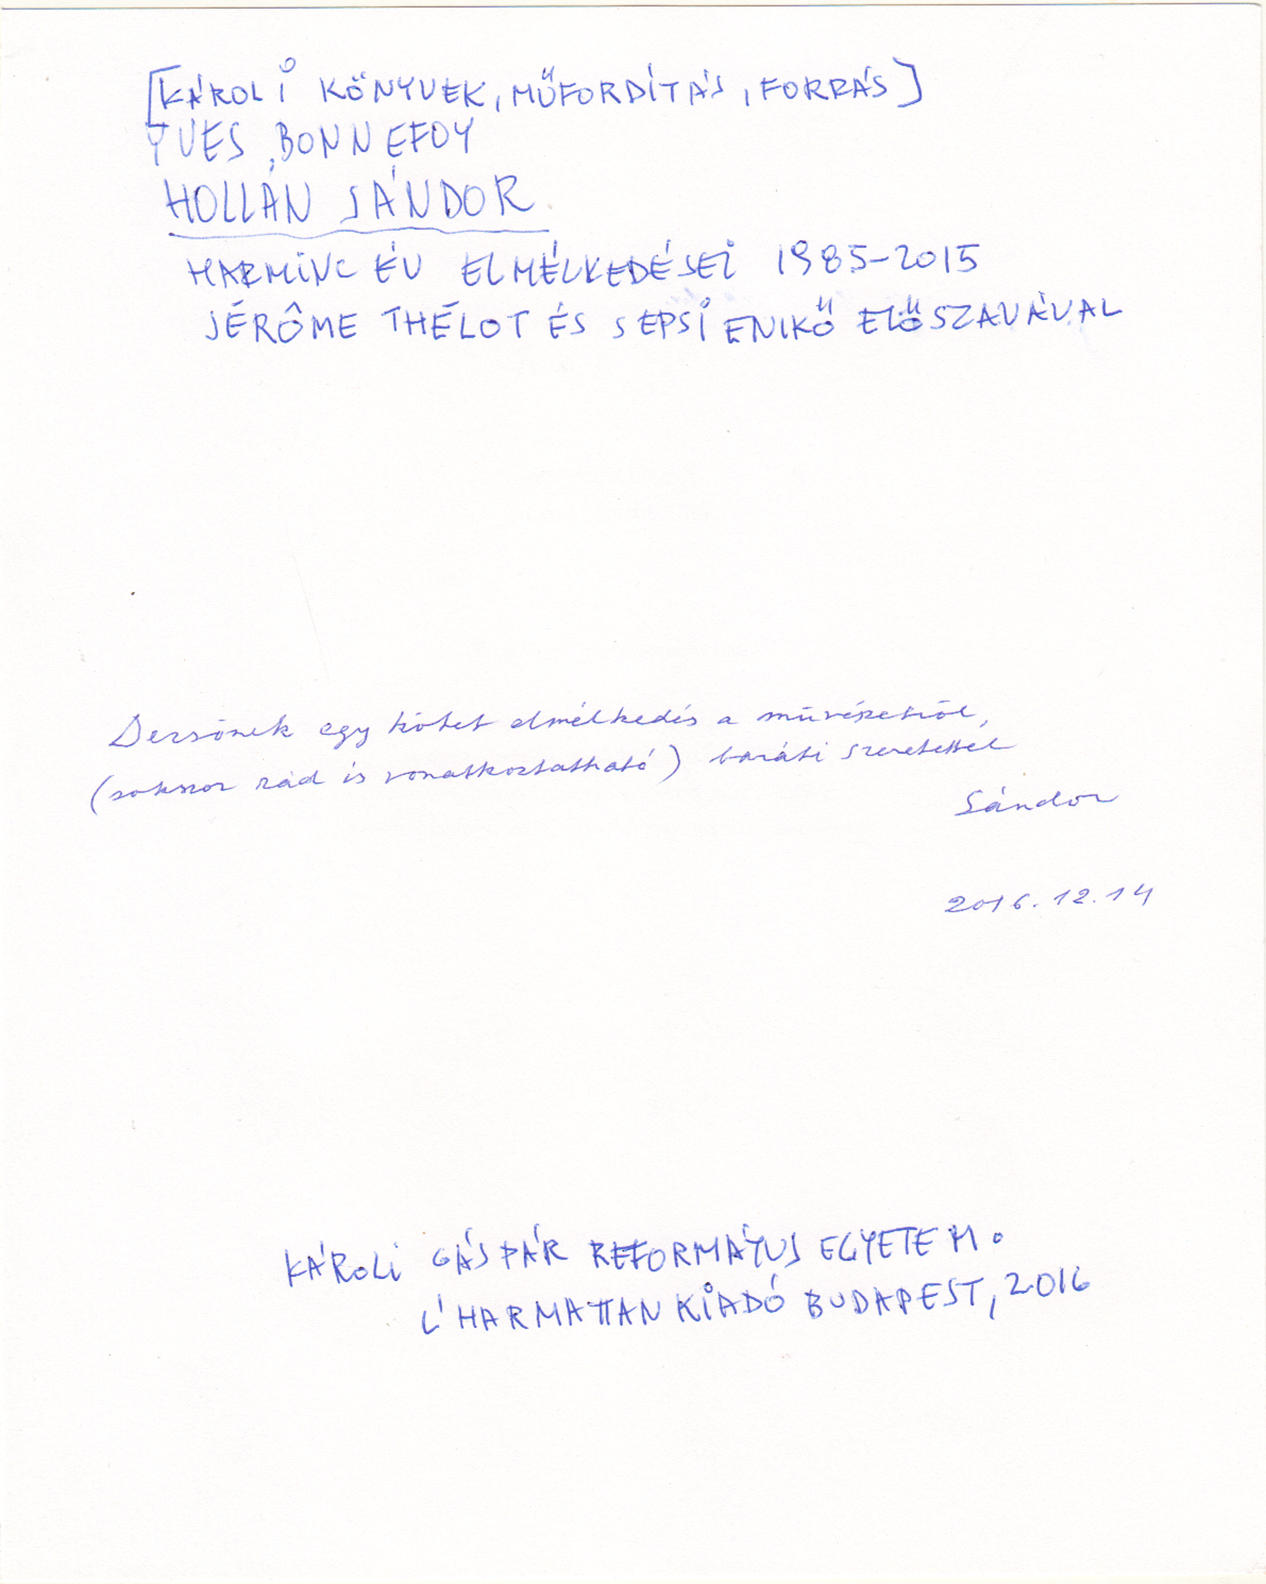 [KÁROLI KÖNYVEK, MŰFORDÍTÁS, FORRÁS]
YVES BONNEFOY
HOLLÁN SÁNDOR
HARMINC ÉV ELMÉLKEDÉSEI 1985-2015
JÉRÔME THÉLOT ÉS SEPSI ENIKŐ ELŐSZAVÁVAL
Dezsőnek egy kötet elmélkedés a művészetről,
(sokszor rád is vonatkoztatható) baráti szeretettel
Sándor
2016.12.14
KÁROLI GÁSPÁR REFORMÁTUS EGYETEM.
L'HARMATTAN KIADÓ BUDAPEST, 2016